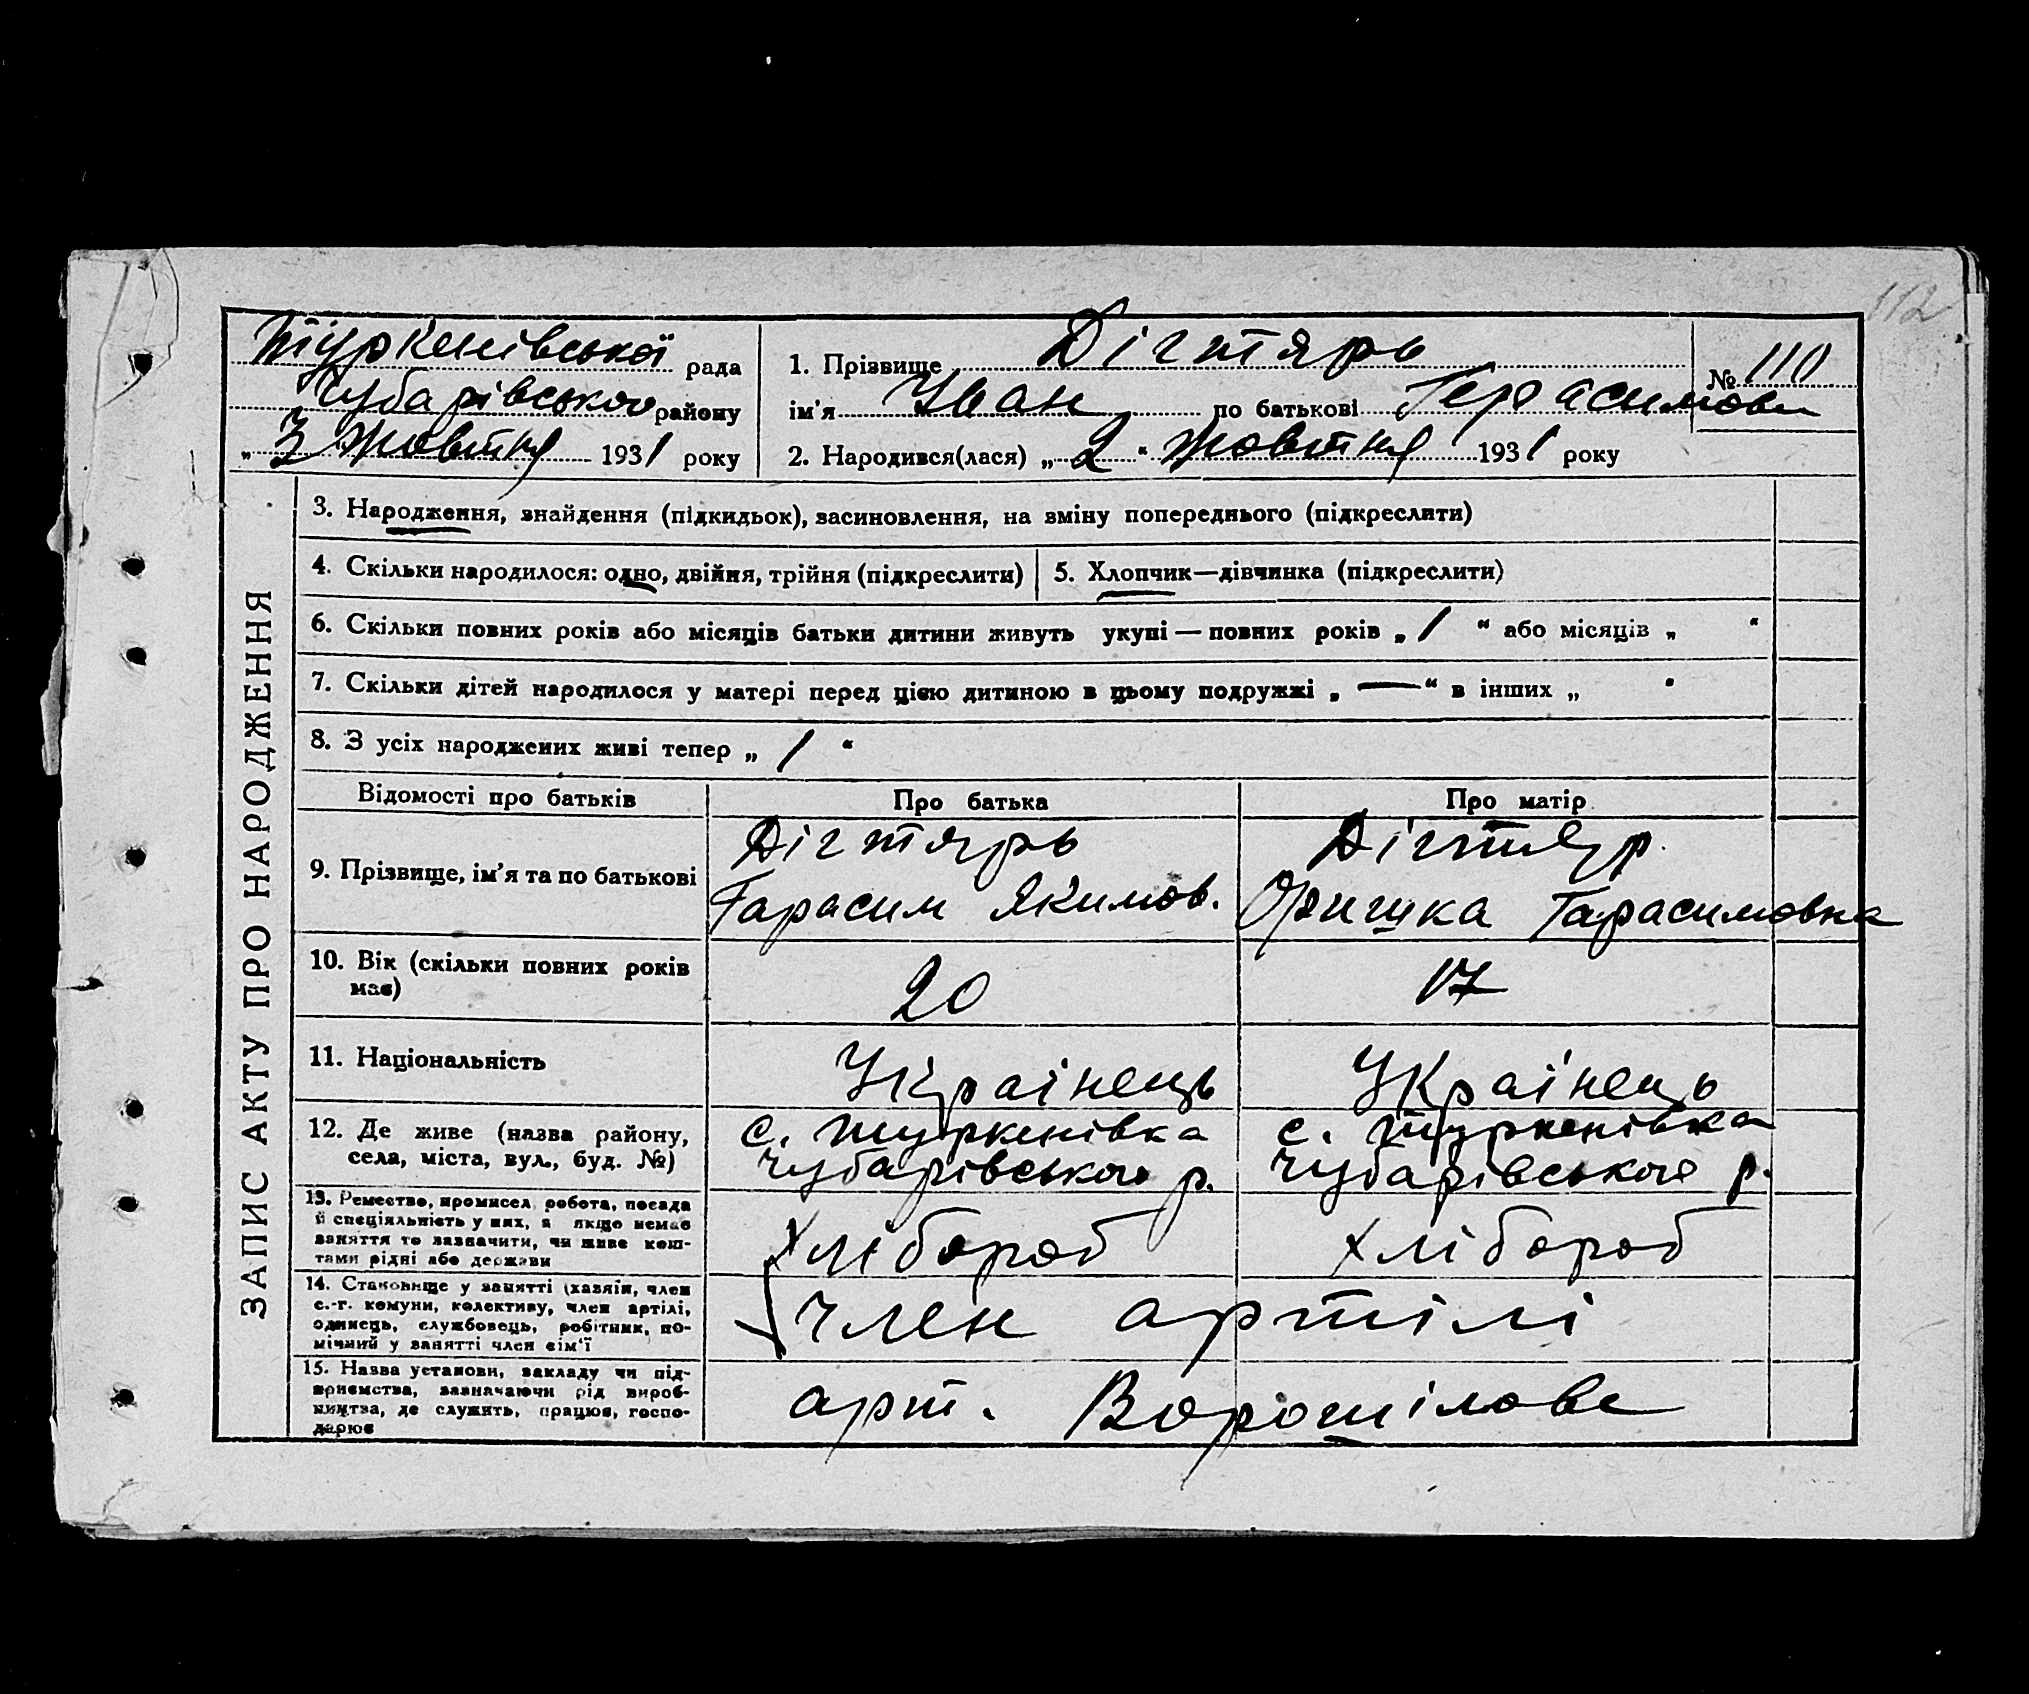 112
Туркенівської рада
Чубарівського району
„ 3 Жовтня 1931 року
1. Прізвище Дігтярь
ім’я Іван по батькові Герасимови
№ 110
2. Народився(лася) „ 2 “ Жовтня 1931 року
ЗАПИС АКТУ ПРО НАРОДЖЕННЯ
3. Народження, знайдення (підкидьок), засиновлення, на зміну попереднього (підкреслити)
4. Скільки народилося: одно, двійня, трійня (підкреслити)
5. Хлопчик—дівчинка (підкреслити)
6. Скільки повних років або місяців батьки дитини живуть укупі — повних років „ 1 “ або місяців „ “
7. Скільки дітей народилося у матері перед цією дитиною в цьому подружжі „ — “ в інших „ “
8. З усіх народжених живі тепер „ 1 “
Відомості про батьків Про батька Про матір
9. Прізвище, ім’я та по батькові
Дігтярь
Гарасим Якимов.
Дігтяр.
Оришка Тарасимовна
10. Вік (скільки повних років
має)
20
17
11. Національність
Українець
Українець
12. Де живе (назва району,
села, міста, вул., буд. №)
с. Туркенівка
Чубарівського р.
с. Туркенівка
Чубарівського р.
13. Ремество, промисел, робота, посада
й спеціяльність у них, а якщо немає
заняття то зазначити, чи живе кош-
тами рідні або держави
Хлібороб
Хлібороб
14. Становище у занятті (хазяїн, член
с.-г. комуни, колективу, член артілі,
одинець, службовець, робітник, по-
мічний у занятті член сім’ї
Член артілі
15. Назва установи, закладу чи під-
приємства, зазначаючи рід вироб-
ництва, де служить, працює, госпо-
дарює
арт. Ворошілове